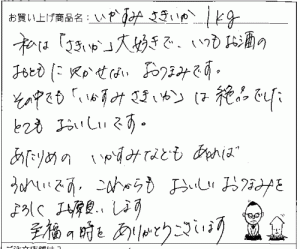 お買い上げ商品名：いかすみさきいか 1kg
私は「さきいか」大好きで、いつもお酒の
おともに欠かせない おつまみです。
その中でも「いかすみさきいか」は絶品でした
とてもおいしいです。
あたりめの いかすみなども あれば
うれしいです。これからも おいしい おつまみを
よろしく お願いします
至福の時を ありがとうございます